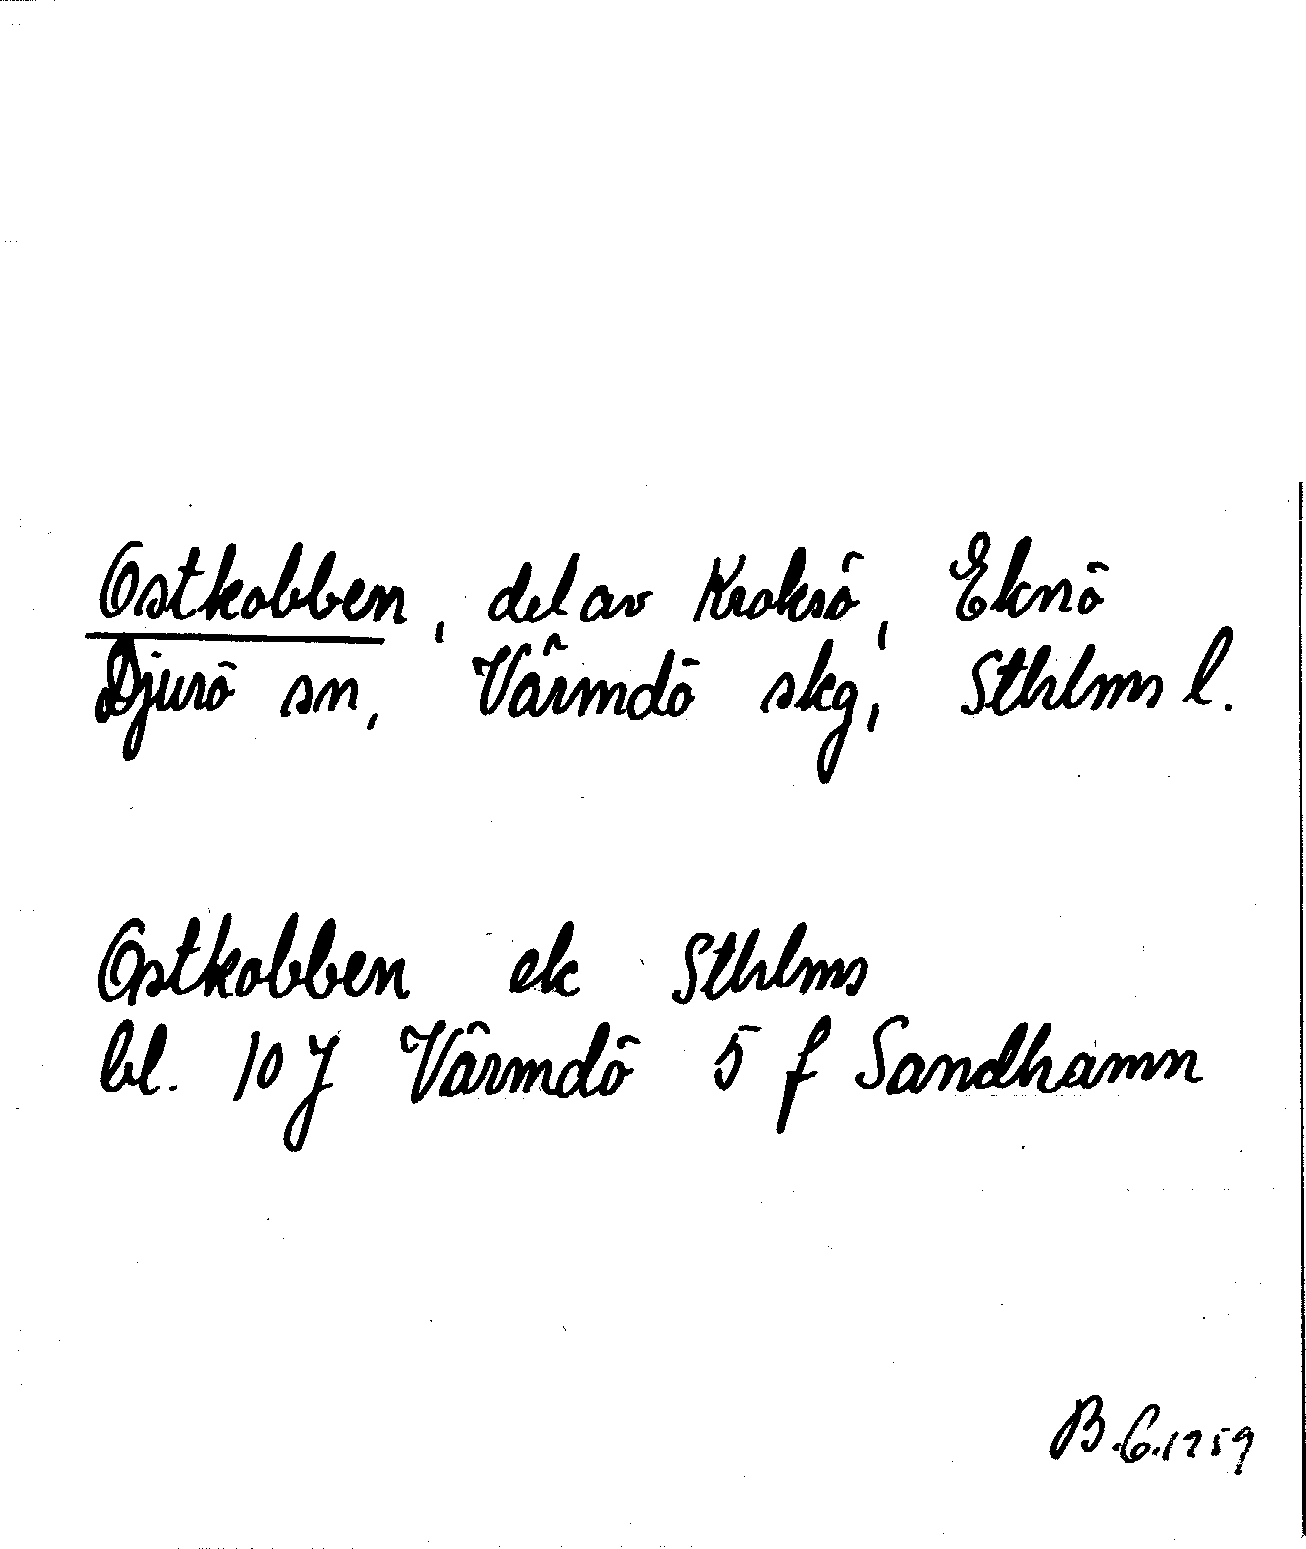 Ostkobben, del av Kroksö, Eknö
Djurö sn, Värmdö skg, Sthlms l.
Ostkobben ek Sthlms
bl. 10 J Värmdö 5 f Sandhamn
B.G. 1959